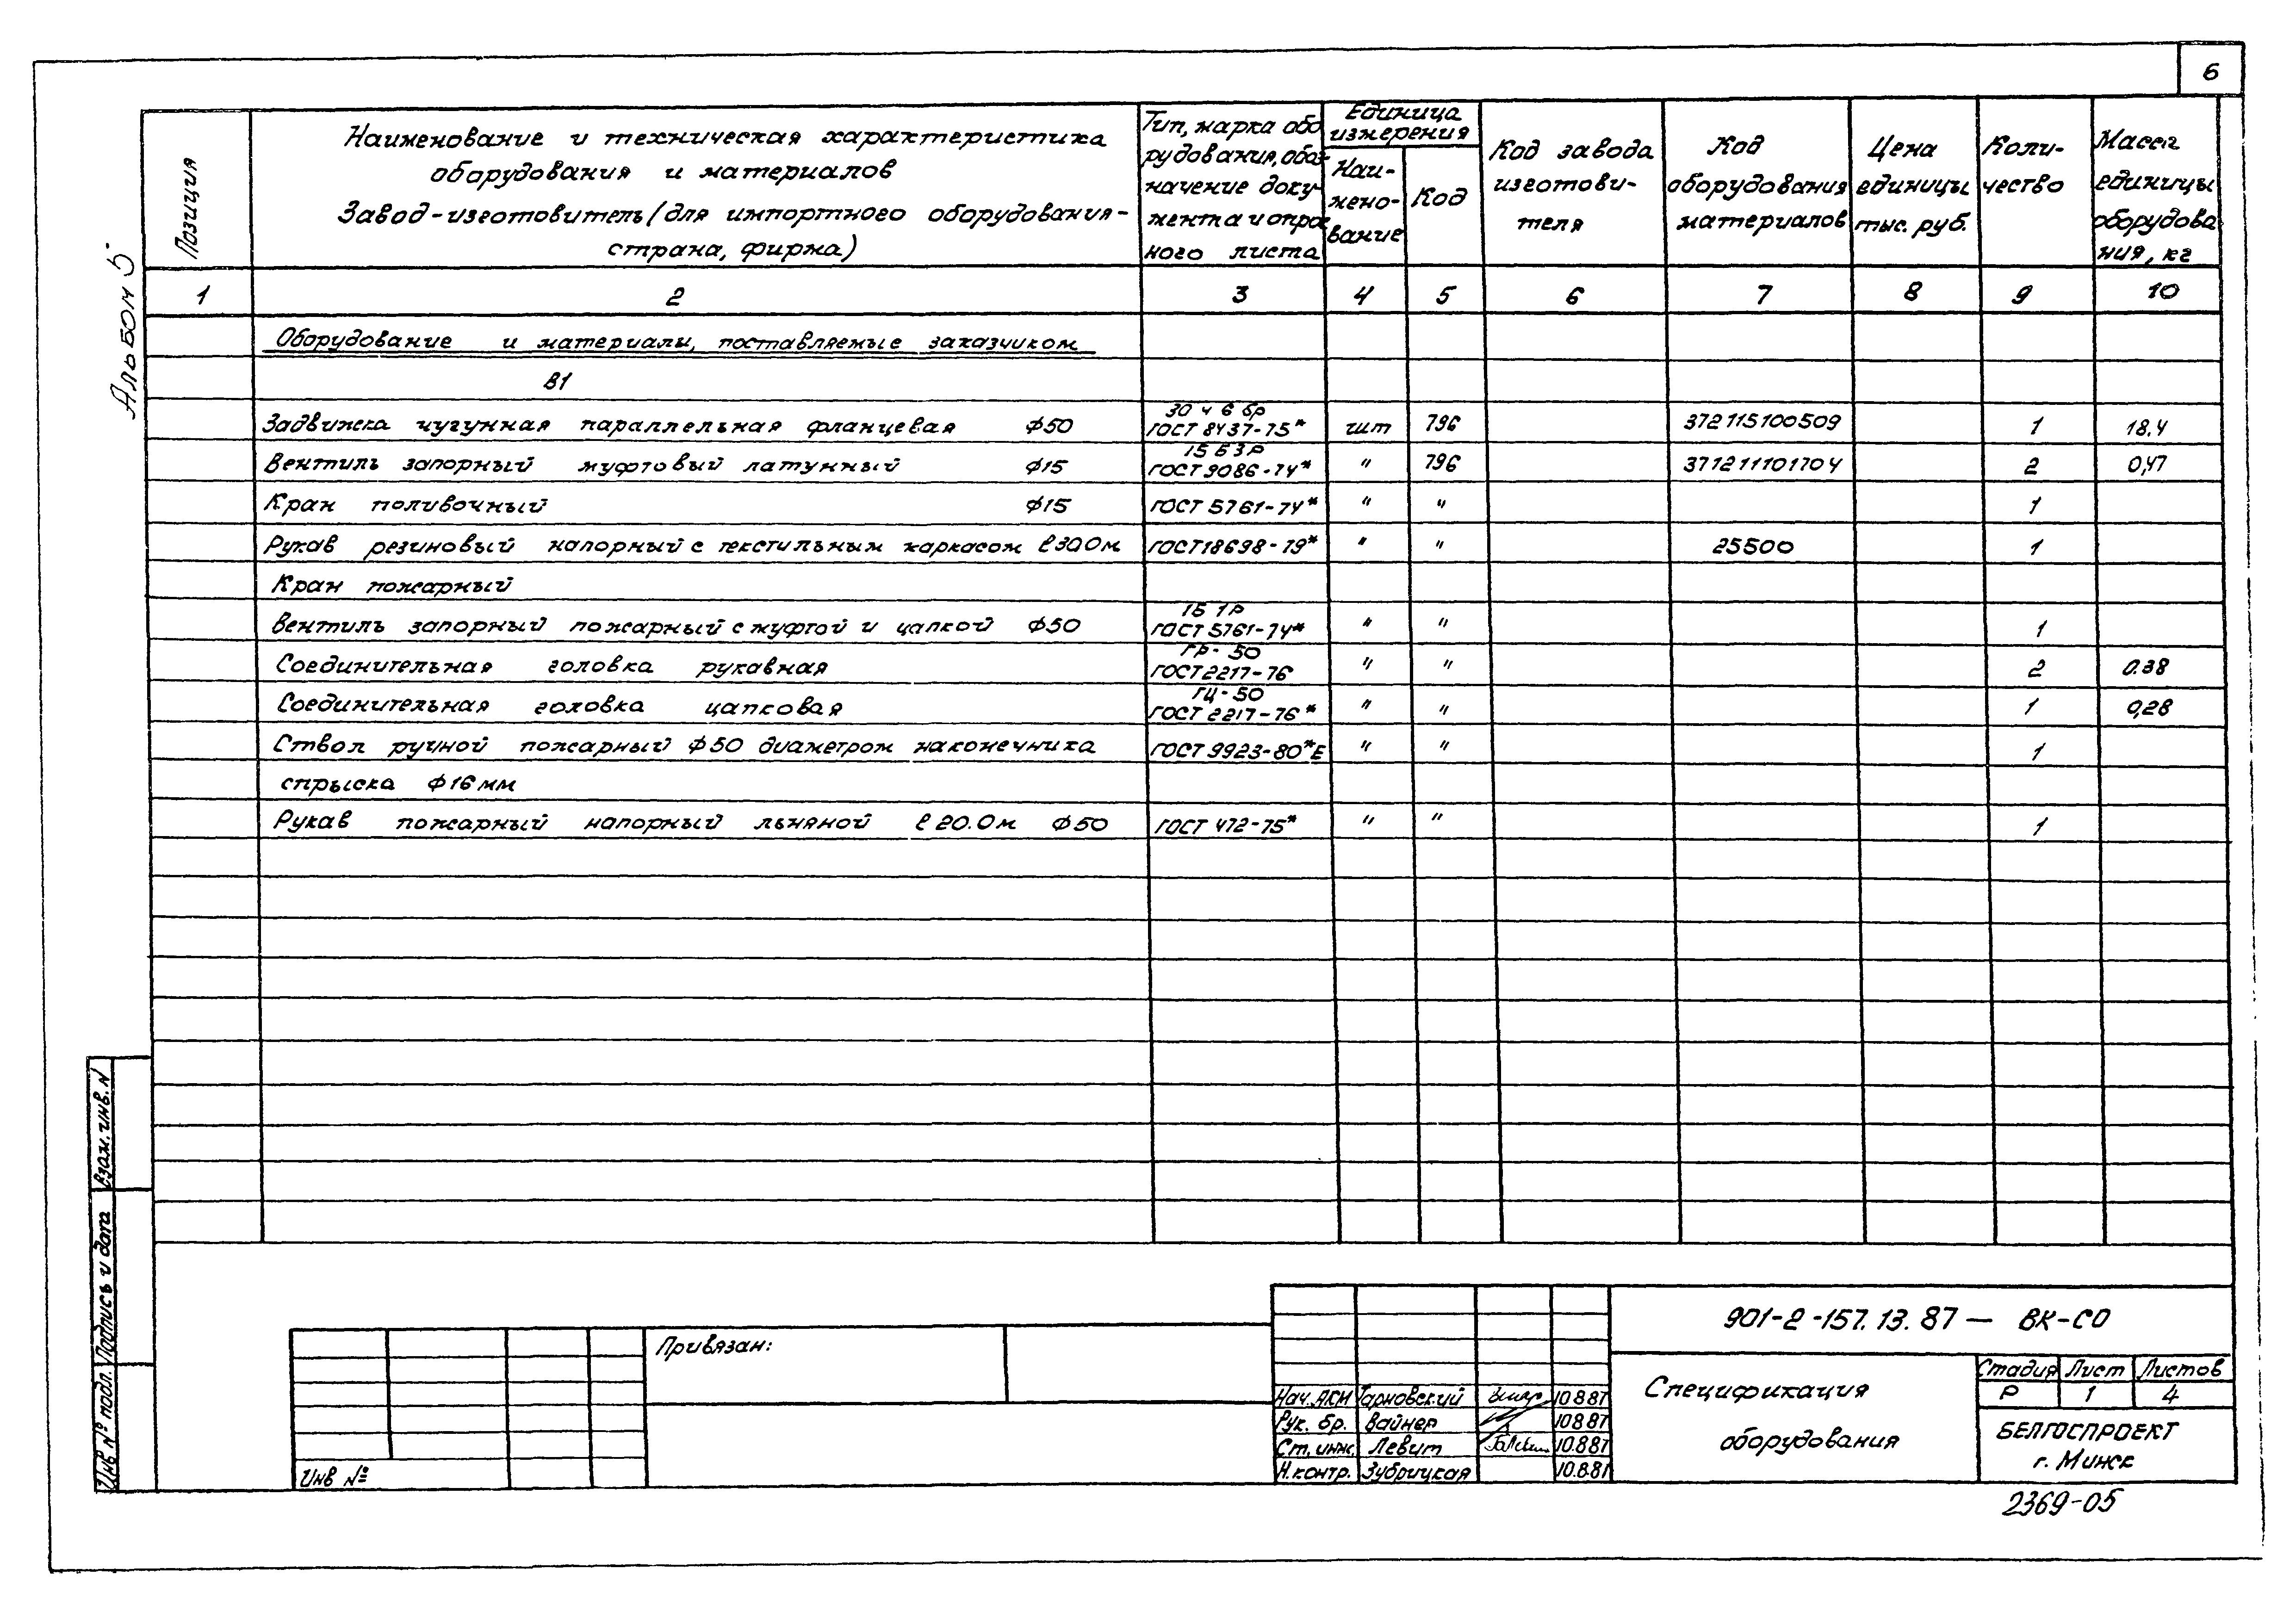 6
Альбом 5
Позиция
Наименование и техническая характеристика
оборудования и материалов
Завод-изготовитель (для импортного оборудования-
страна, фирма)
Тип, марка обо
рудования, обоз-
начение доку-
мента и опрос
ного листа
Единица
измерения
Наи-
мено-
вание
Код
Код завода
изготови-
теля
Код
оборудования
материалов
Цена
единицы
тыс. руб.
Коли-
чество
Масса
единицы
оборудова
ния, кг
1 2 3 4 5 6 7 8 9 10
Оборудование и материалы, поставляемые заказчиком
В1
30 ч 6 бр
Задвижка чугунная параллельная фланцевая ф50 ГОСТ 8437-75* шт 796 372115100509 1 18.4
15 Б3Р
Вентиль запорный муфтовый латунный ф15 ГОСТ 9086-74* " 796 371211101704 2 0,47
Кран поливочный ф15 ГОСТ 5761-74* " " 1
Рукав резиновый напорный с текстильным каркасом ℓ30.0м ГОСТ18698-79* " " 25500 1
Кран пожарный
1Б 1Р
Вентиль запорный пожарный с муфтой и цапкой ф50 ГОСТ 5761-74* " " 1
ГР-50
Соединительная головка рукавная ГОСТ2217-76 " " 2 0.38
ГЦ-50
Соединительная головка цапковая ГОСТ 2217-76* " " 1 0,28
Ствол ручной пожарный ф50 диаметром наконечника ГОСТ 9923-80*Е " " 1
спрыска ф16мм
Рукав пожарный напорный льняной ℓ20.0м ф50 ГОСТ 472-75* " " 1
Взам.инв.N
Подпись и дата
Инв № подл.
Привязан:
Инв №
901-2-157.13.87 — ВК-СО
Нач.АКМ Тарновский 10.8.87
Рук. бр. Вайнер 10.8.87
Ст.инж. Левит 10.8.87
Н.контр. Зубрицкая 10.8.87
Спецификация
оборудования
Стадия Лист Листов
Р 1 4
БЕЛГОСПРОЕКТ
г. Минск
2369-05